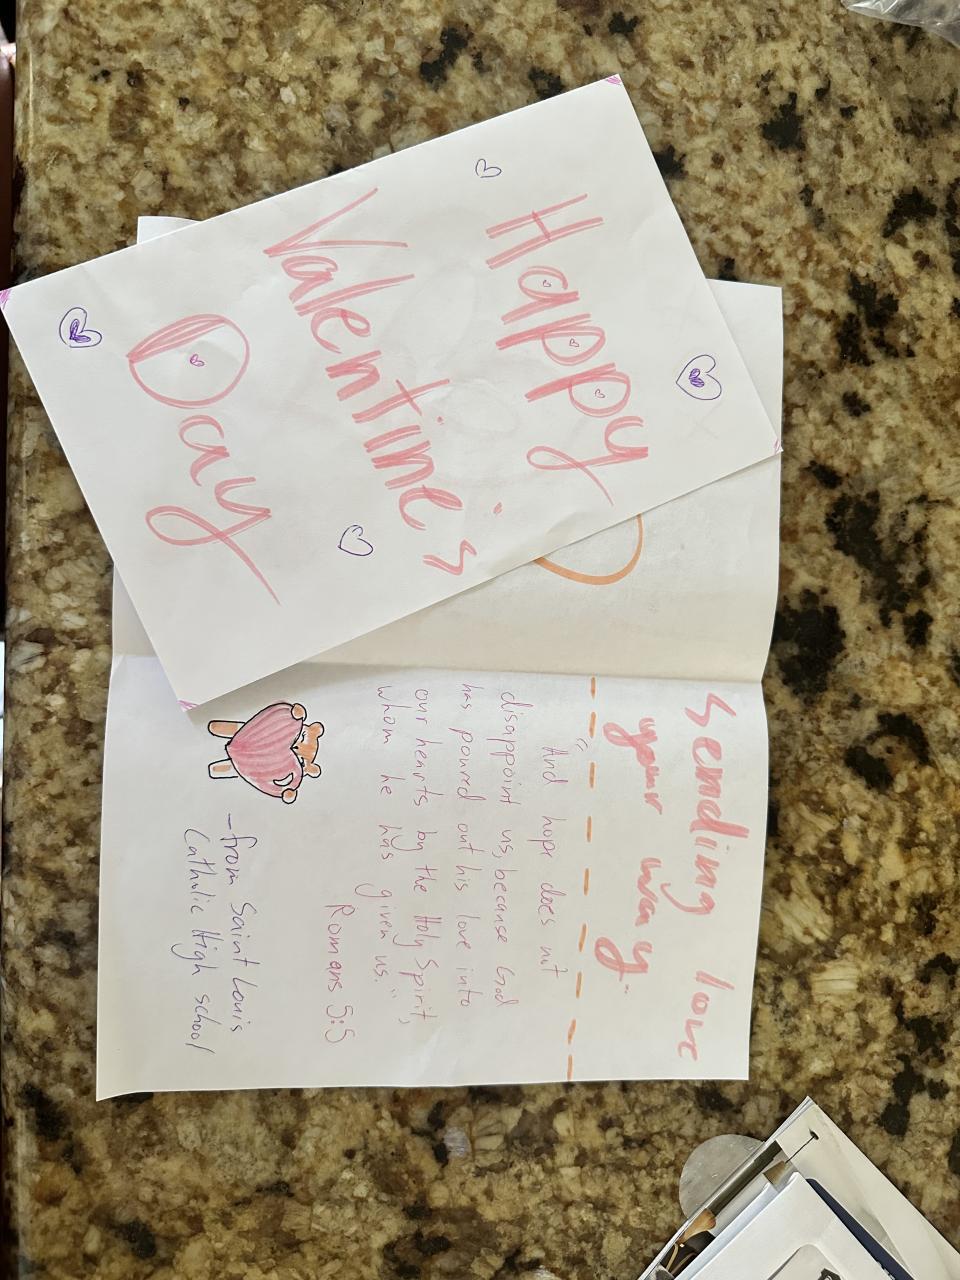 Happy
Valentine's
Day
Sending love
your way
"And hope does not
disappoint us, because God
has poured out his love into
our hearts by the Holy Spirit,
whom he has given us."
Romans 5:5
-from Saint Louis
Catholic High school